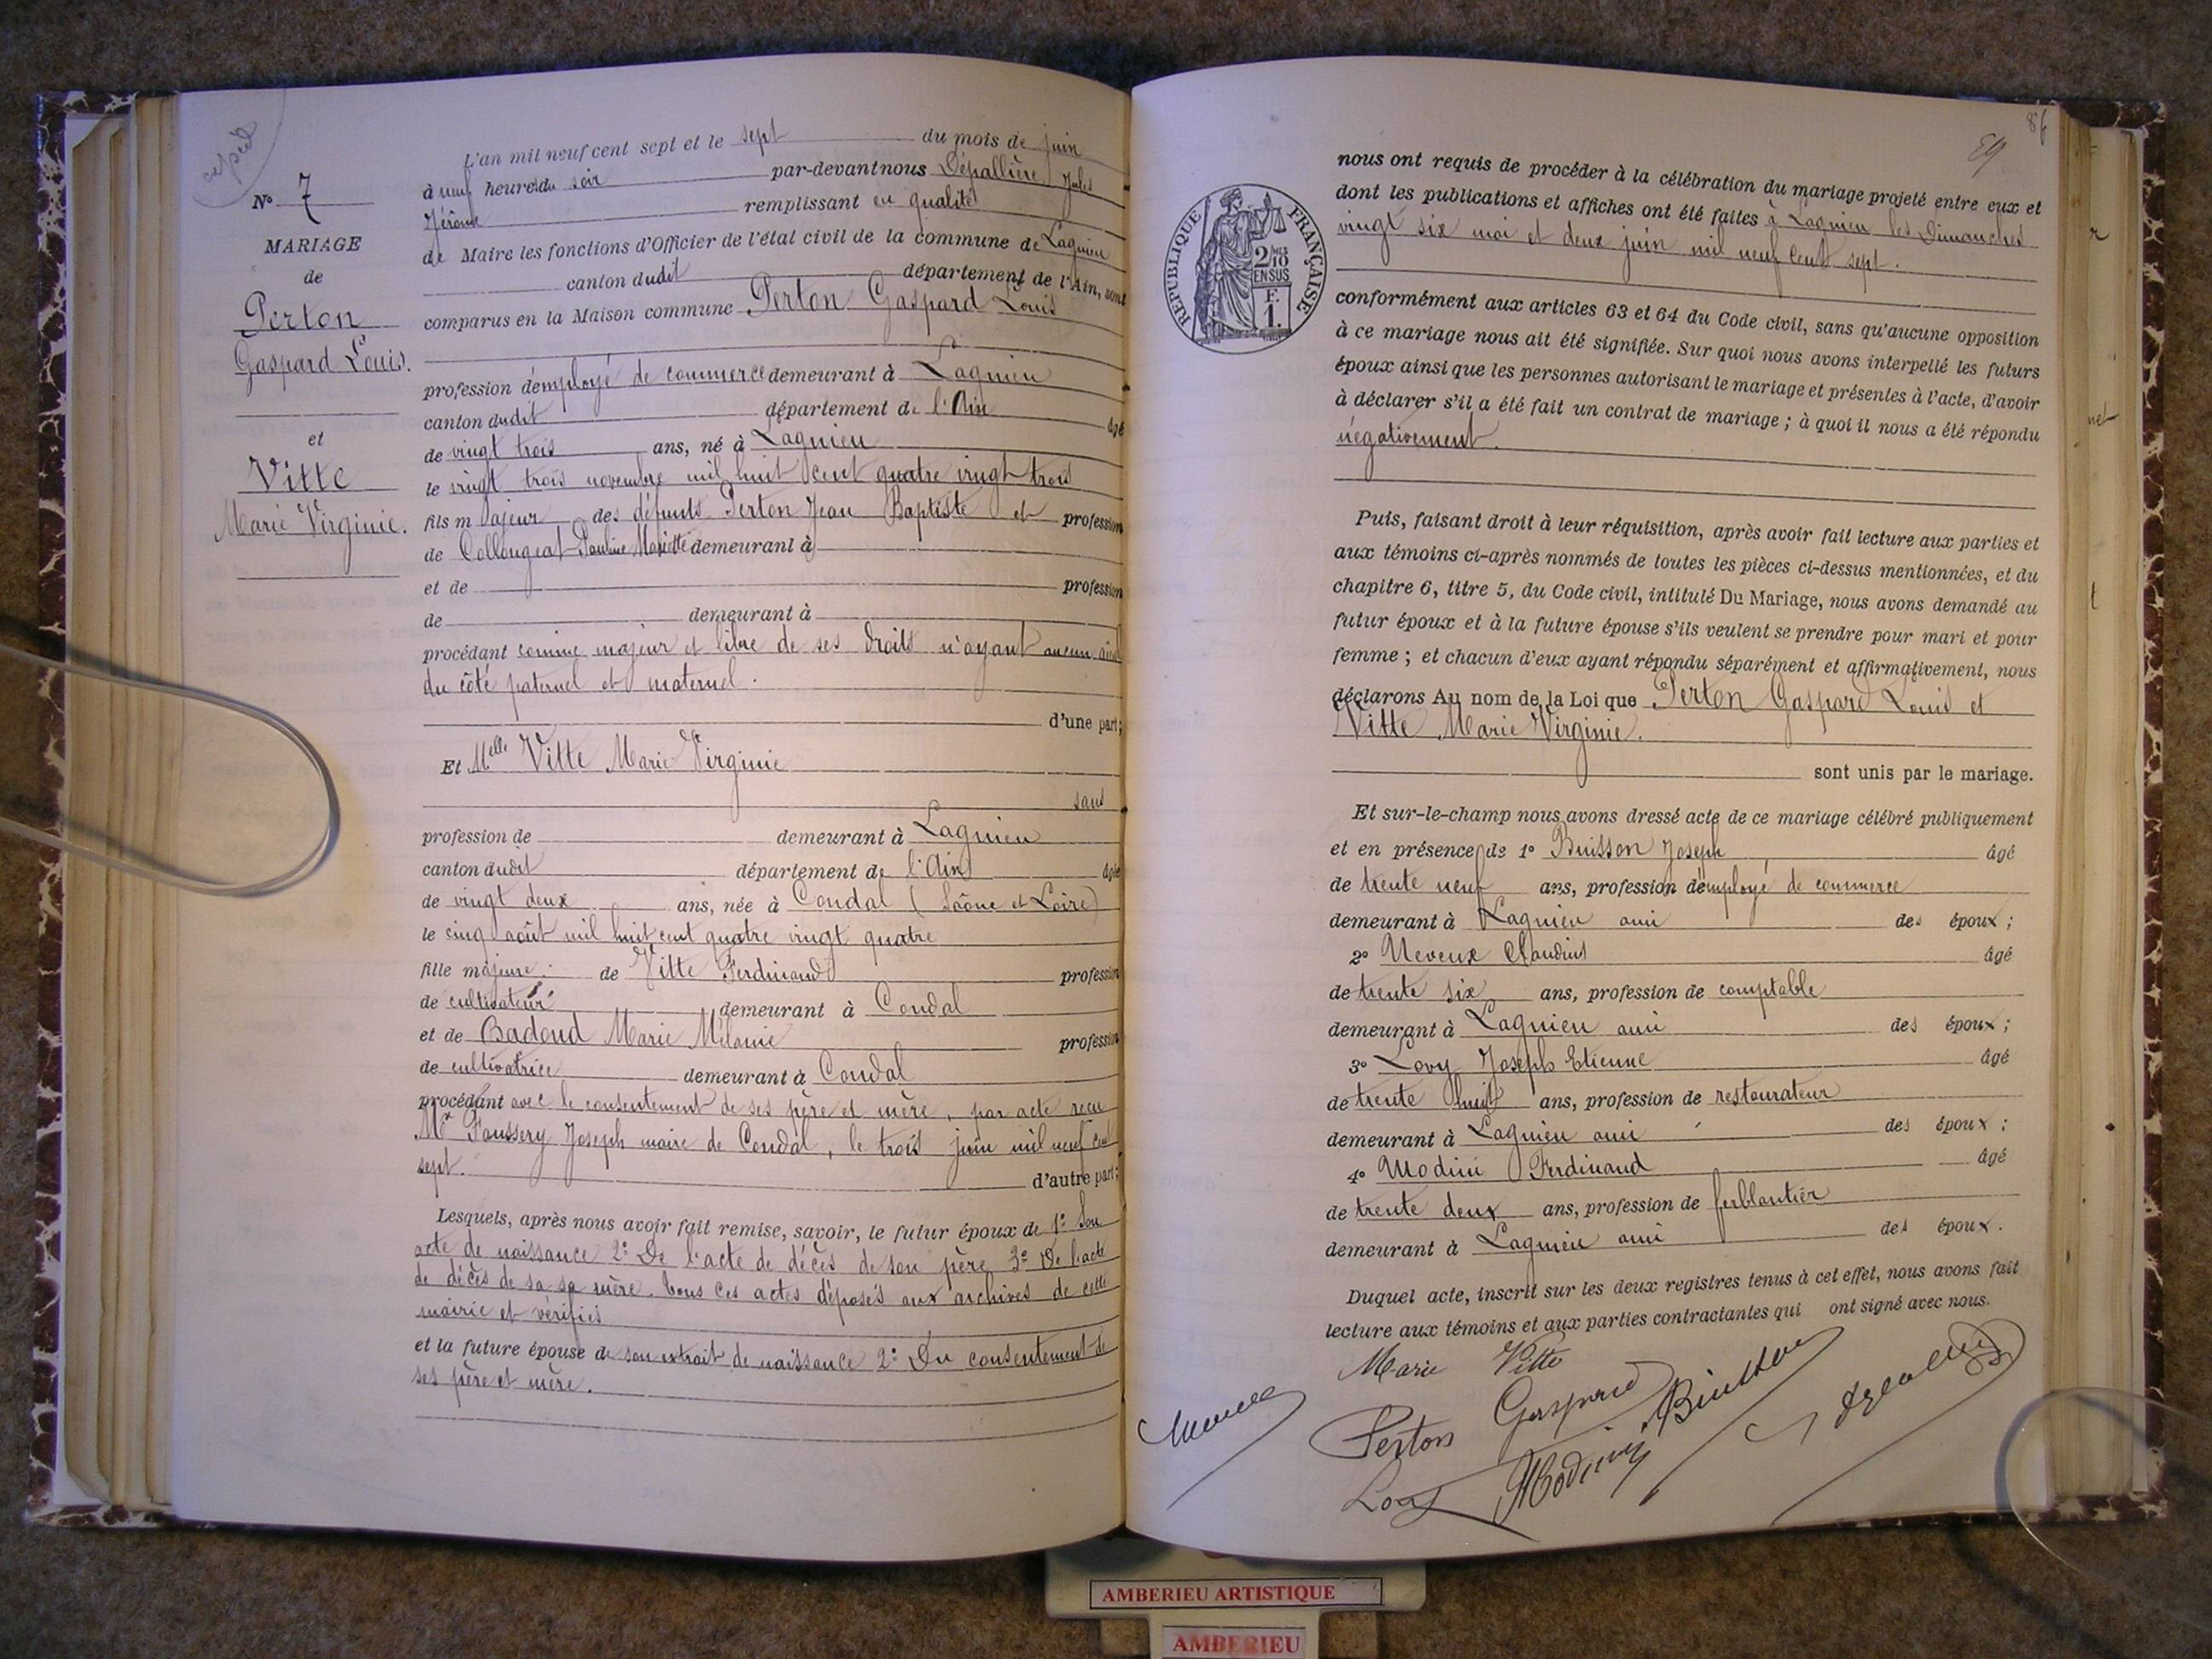 copié
N° 7
MARIAGE
de
Perton
Gaspard Louis.
et
Vitte
Marie Virginie.
L'an mil neuf cent sept et le sept du mois de juin
à neuf heures du soir par-devant nous Dépallière Jules
Jérôme remplissant en qualité
de Maire les fonctions d'Officier de l'état civil de la commune de Lagnieu
canton dudit département de l'Ain, sont
comparus en la Maison commune Perton Gaspard Louis
profession d'employé de commerce demeurant à Lagnieu
canton dudit département de l'Ain âgé
de vingt trois ans, né à Lagnieu
le vingt trois novembre mil huit cent quatre vingt trois
fils majeur des défunts Perton Jean Baptiste et profession
de Collongeat Pauline Mariette demeurant à
et de profession
de demeurant à
procédant comme majeur et libre de ses droits n'ayant aucun aïeul
du côté paternel et maternel.
d'une part;
Et Melle Vitte Marie Virginie
sans
profession de demeurant à Lagnieu
canton dudit département de l'Ain âgée
de vingt deux ans, née à Condal (Saône et Loire)
le cinq août mil huit cent quatre vingt quatre
fille majeure de Vitte Ferdinand profession
de cultivateur demeurant à Condal
et de Badoud Marie Mélanie profession
de cultivatrice demeurant à Condal
procédant avec le consentement de ses père et mère, par acte reçu
Mr Foussery Joseph maire de Condal, le trois juin mil neuf cent
sept. d'autre part;
Lesquels, après nous avoir fait remise, savoir, le futur époux de 1° Son
acte de naissance 2° De l'acte de décès de son père 3° De l'acte
de décès de sa sa mère. Tous ces actes déposés aux archives de cette
mairie et vérifiés
et la future épouse de son extrait de naissance 2° Du consentement de
ses père et mère.
86
89
REPUBLIQUE FRANÇAISE
2/10 MES
EN SUS
F.
1.
nous ont requis de procéder à la célébration du mariage projeté entre eux et
dont les publications et affiches ont été faites à Lagnieu les Dimanches
vingt six mai et deux juin mil neuf cent sept.
conformément aux articles 63 et 64 du Code civil, sans qu'aucune opposition
à ce mariage nous ait été signifiée. Sur quoi nous avons interpellé les futurs
époux ainsi que les personnes autorisant le mariage et présentes à l'acte, d'avoir
à déclarer s'il a été fait un contrat de mariage ; à quoi il nous a été répondu
négativement.
Puis, faisant droit à leur réquisition, après avoir fait lecture aux parties et
aux témoins ci-après nommés de toutes les pièces ci-dessus mentionnées, et du
chapitre 6, titre 5, du Code civil, intitulé Du Mariage, nous avons demandé au
futur époux et à la future épouse s'ils veulent se prendre pour mari et pour
femme ; et chacun d'eux ayant répondu séparément et affirmativement, nous
déclarons Au nom de la Loi que Perton Gaspard Louis et
Vitte Marie Virginie.
sont unis par le mariage.
Et sur-le-champ nous avons dressé acte de ce mariage célébré publiquement
et en présence de 1° Buisson Joseph âgé
de trente neuf ans, profession d'employé de commerce
demeurant à Lagnieu ami des époux ;
2° Neveux Claudius âgé
de trente six ans, profession de comptable
demeurant à Lagnieu ami des époux ;
3° Lovy Joseph Etienne âgé
de trente huit ans, profession de restaurateur
demeurant à Lagnieu ami des époux ;
4° Modini Ferdinand âgé
de trente deux ans, profession de ferblantier
demeurant à Lagnieu ami des époux.
Duquel acte, inscrit sur les deux registres tenus à cet effet, nous avons fait
lecture aux témoins et aux parties contractantes qui ont signé avec nous.
Marie Vitte
Perton Gaspard Buisson
Lovy Modini
AMBERIEU ARTISTIQUE
AMBERIEU